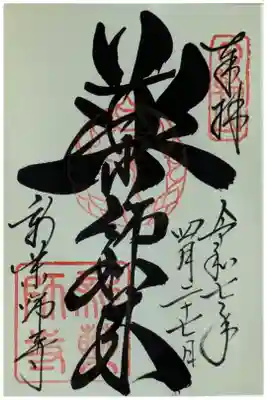 奉拝
令和七年
四月二十七日
薬師如来
新薬師寺